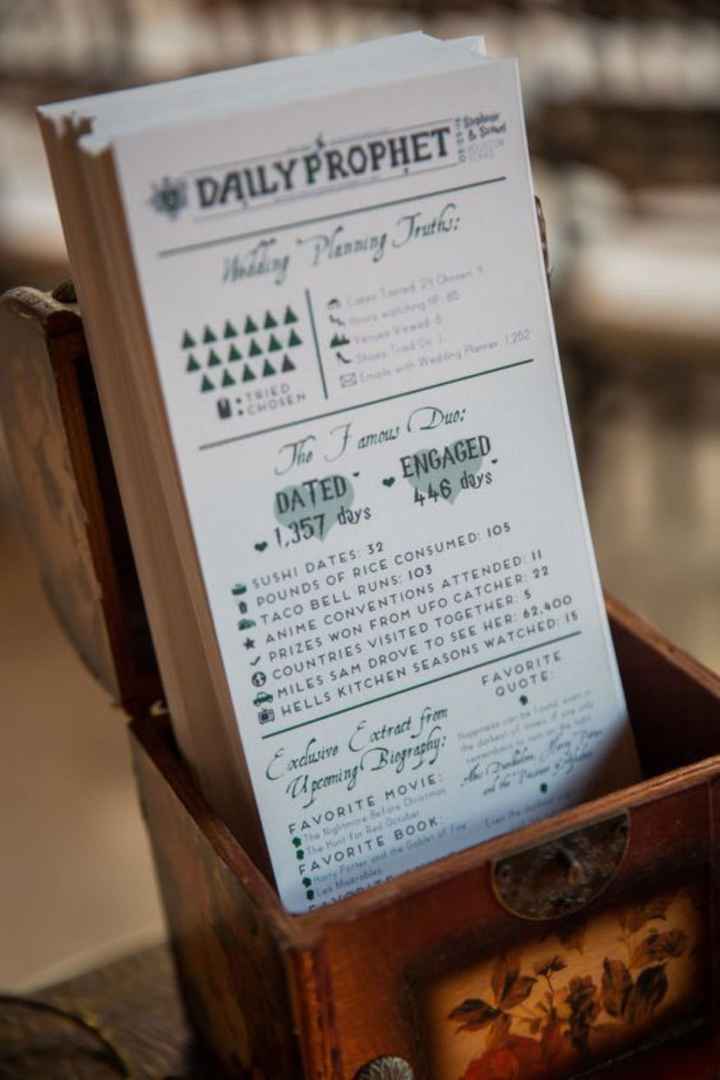 DAILY PROPHET
& 
Wedding Planning Truths:
Cakes Tasted: 21 Chosen: 1
Hours watching HP: 85
Venues Viewed: 6
Shoes Tried On:
Emails with Wedding Planner: 1,252
: TRIED
: CHOSEN
The Famous Duo:
DATED
1,357 days
ENGAGED
446 days
SUSHI DATES: 32
POUNDS OF RICE CONSUMED: 105
TACO BELL RUNS: 103
ANIME CONVENTIONS ATTENDED: 11
PRIZES WON FROM UFO CATCHER: 22
COUNTRIES VISITED TOGETHER: 5
MILES SAM DROVE TO SEE HER: 62,400
HELLS KITCHEN SEASONS WATCHED: 15
Exclusive Extract from
Upcoming Biography:
FAVORITE MOVIE:
The Nightmare Before Christmas
The Hunt for Red October
FAVORITE BOOK:
Harry Potter and the Goblet of Fire
Les Misérables
FAVORITE
FAVORITE
QUOTE:
Happiness can be found, even in
the darkest of times, if one only
remembers to turn on the light.
Albus Dumbledore, Harry Potter
and the Prisoner of Azkaban